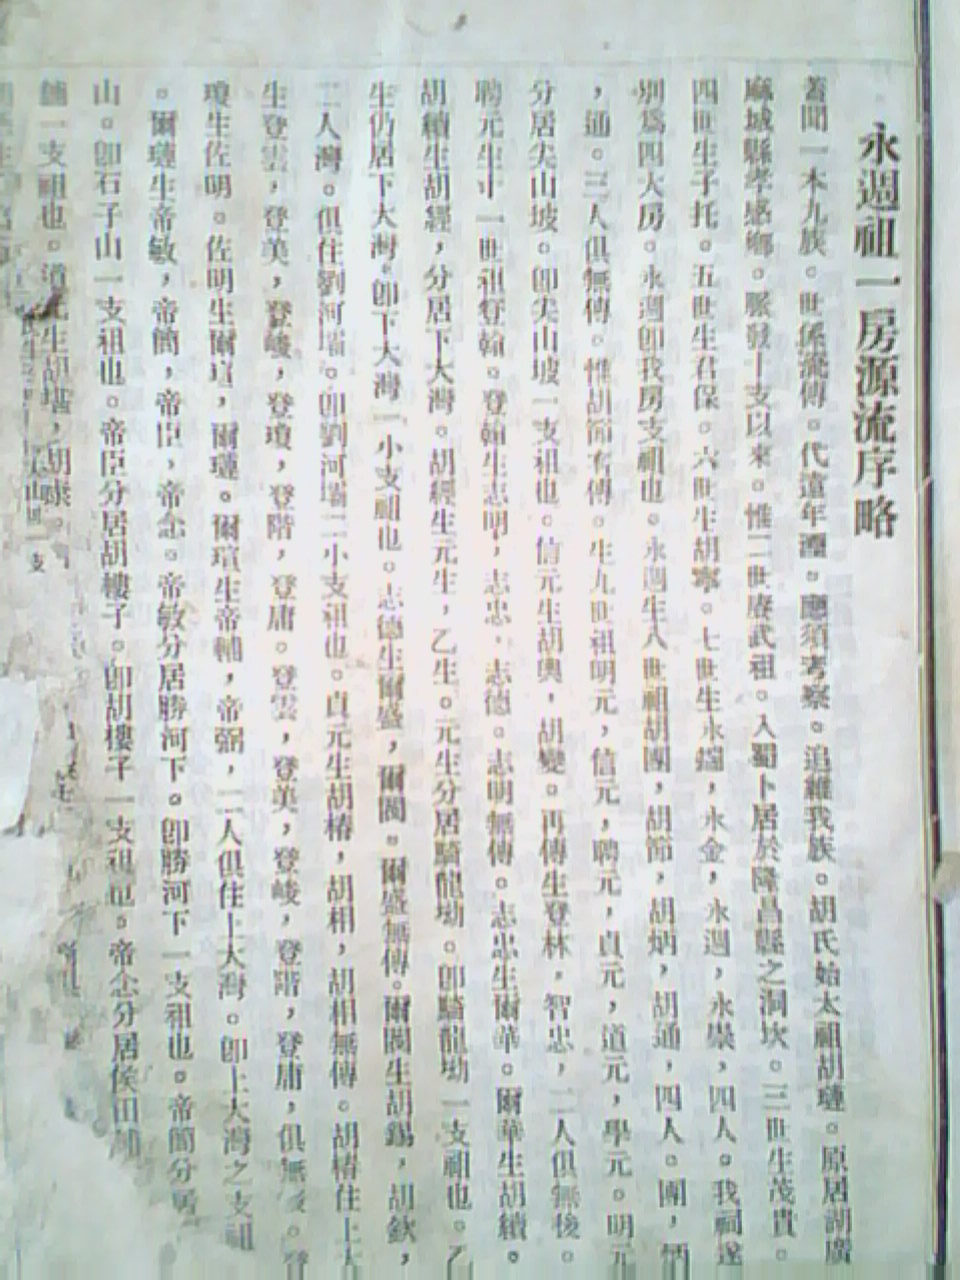 永週祖一房源流序略
蓋聞一本九族。世係流傳。代遠年湮。應須考察。追維我族。胡氏始太祖胡璉。原居湖廣
麻城縣孝感鄉。脈發一支以來。惟二世賡武祖。入蜀卜居於隆昌縣之洞坎。三世生茂貴。
四世生子托。五世生君保。六世生胡寧。七世生永鐺，永金，永週，永榮，四人。我祠遂
別爲四大房。永週卽我房支祖也。永週生八世祖胡團，胡節，胡炳，胡通，四人。團，炳
，通。三人俱無傳。惟胡節有傳。生九世祖明元，信元，聘元，貞元，道元，學元。明元
分居尖山坡。卽尖山坡一支祖也。信元生胡輿，胡變。再傳生登林，智忠，二人俱無後。
聘元生十一世祖登翰。登翰生志明，志忠，志德。志明無傳。志忠生爾華。爾華生胡續。
胡續生胡經，分居下大灣。胡經生元生，乙生。元生分居騎龍坳。卽騎龍坳一支祖也。乙
生仍居下大灣。卽下大灣一小支祖也。志德生爾盛，爾閣。爾盛無傳。爾閣生胡錫，胡欽，
二人灣。俱住劉河壩。卽劉河壩二小支祖也。貞元生胡椿，胡相，胡相無傳。胡椿住上大
生登雲，登美，登峻，登瓊，登階，登庸。登雲，登美，登峻，登階，登庸，俱無後。登
瓊生佐明。佐明生爾瑄，爾璉。爾瑄生帝輔，帝弼，二人俱住上大灣。卽上大灣之支祖
。爾璉生帝敏，帝簡，帝臣，帝念。帝敏分居勝河下。卽勝河下一支祖也。帝簡分居
山。卽石子山一支祖也。帝臣分居胡樓子。卽胡樓子一支祖也。帝念分居侯田鋪
鋪一支祖也。道元生胡堪，胡